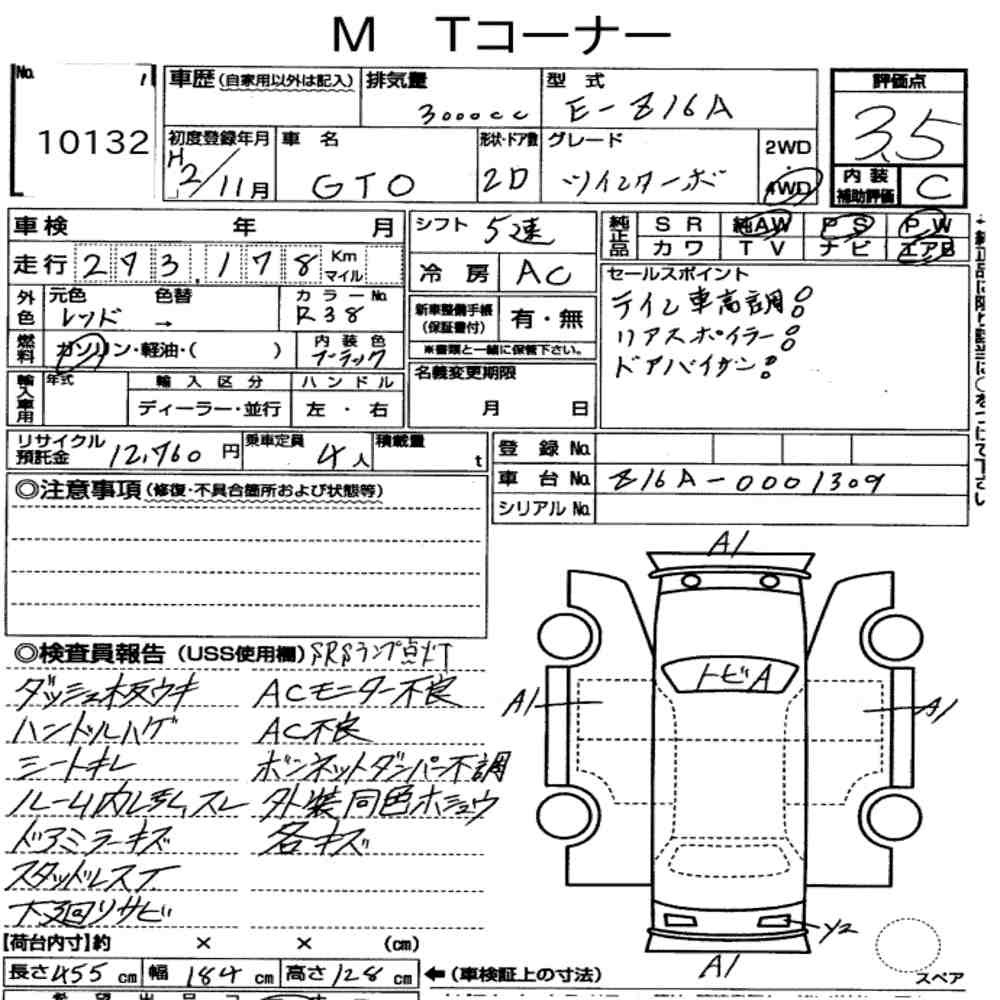 M Tコーナー
No. 10132
車歴(自家用以外は記入)
排気量 3000cc
型式 E-Z16A
評価点 3.5
初度登録年月 H2/11月
車名 GTO
形状・ドア数 2D
グレード ツインターボ
2WD・4WD
内装補助評価 C
車検 年 月
シフト 5速
純正品 SR 純AW PS PW
カワ TV ナビ エアB
走行 273,178 Km マイル
冷房 AC
セールスポイント
テイン車高調!
リアスポイラー!
ドアバイザー!
外色 元色 レッド 色替 → カラーNo. R38
新車整備手帳(保証書付) 有・無
※書類と一緒に保管下さい。
燃料 ガソリン・軽油・( ) 内装色 ブラック
名義変更期限 月 日
輸入車用 年式 輸入区分 ハンドル
ディーラー・並行 左・右
リサイクル預託金 12,760円
乗車定員 4人
積載量 t
登録No.
車台No. Z16A-0001309
シリアルNo.
◎注意事項(修復・不具合箇所および状態等)
◎検査員報告(USS使用欄) SRSランプ点灯
ダッシュ板ウキ ACモニター不良
ハンドルハゲ AC不良
シートキレ ボンネットダンパー不調
ルーム内レザースレ 外装同色ホシュウ
ドアミラーキズ 各キズ
スタッドレス
下廻リサビ
A1
トビA
A1
A1
Y2
A1
スペア
【荷台内寸】約 × × (cm)
長さ455cm 幅184cm 高さ128cm ←(車検証上の寸法)